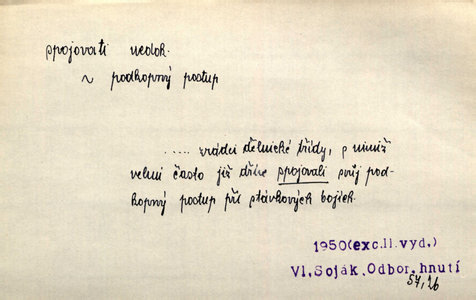 spojovati nedok.
~ podkopný postup
..... zrádci dělnické třídy, s nimiž
velmi často již dříve spojovali svůj pod-
kopný postup při stávkových bojích.
1950(exc.II.vyd.)
Vl.Soják, Odbor. hnutí
54, 26